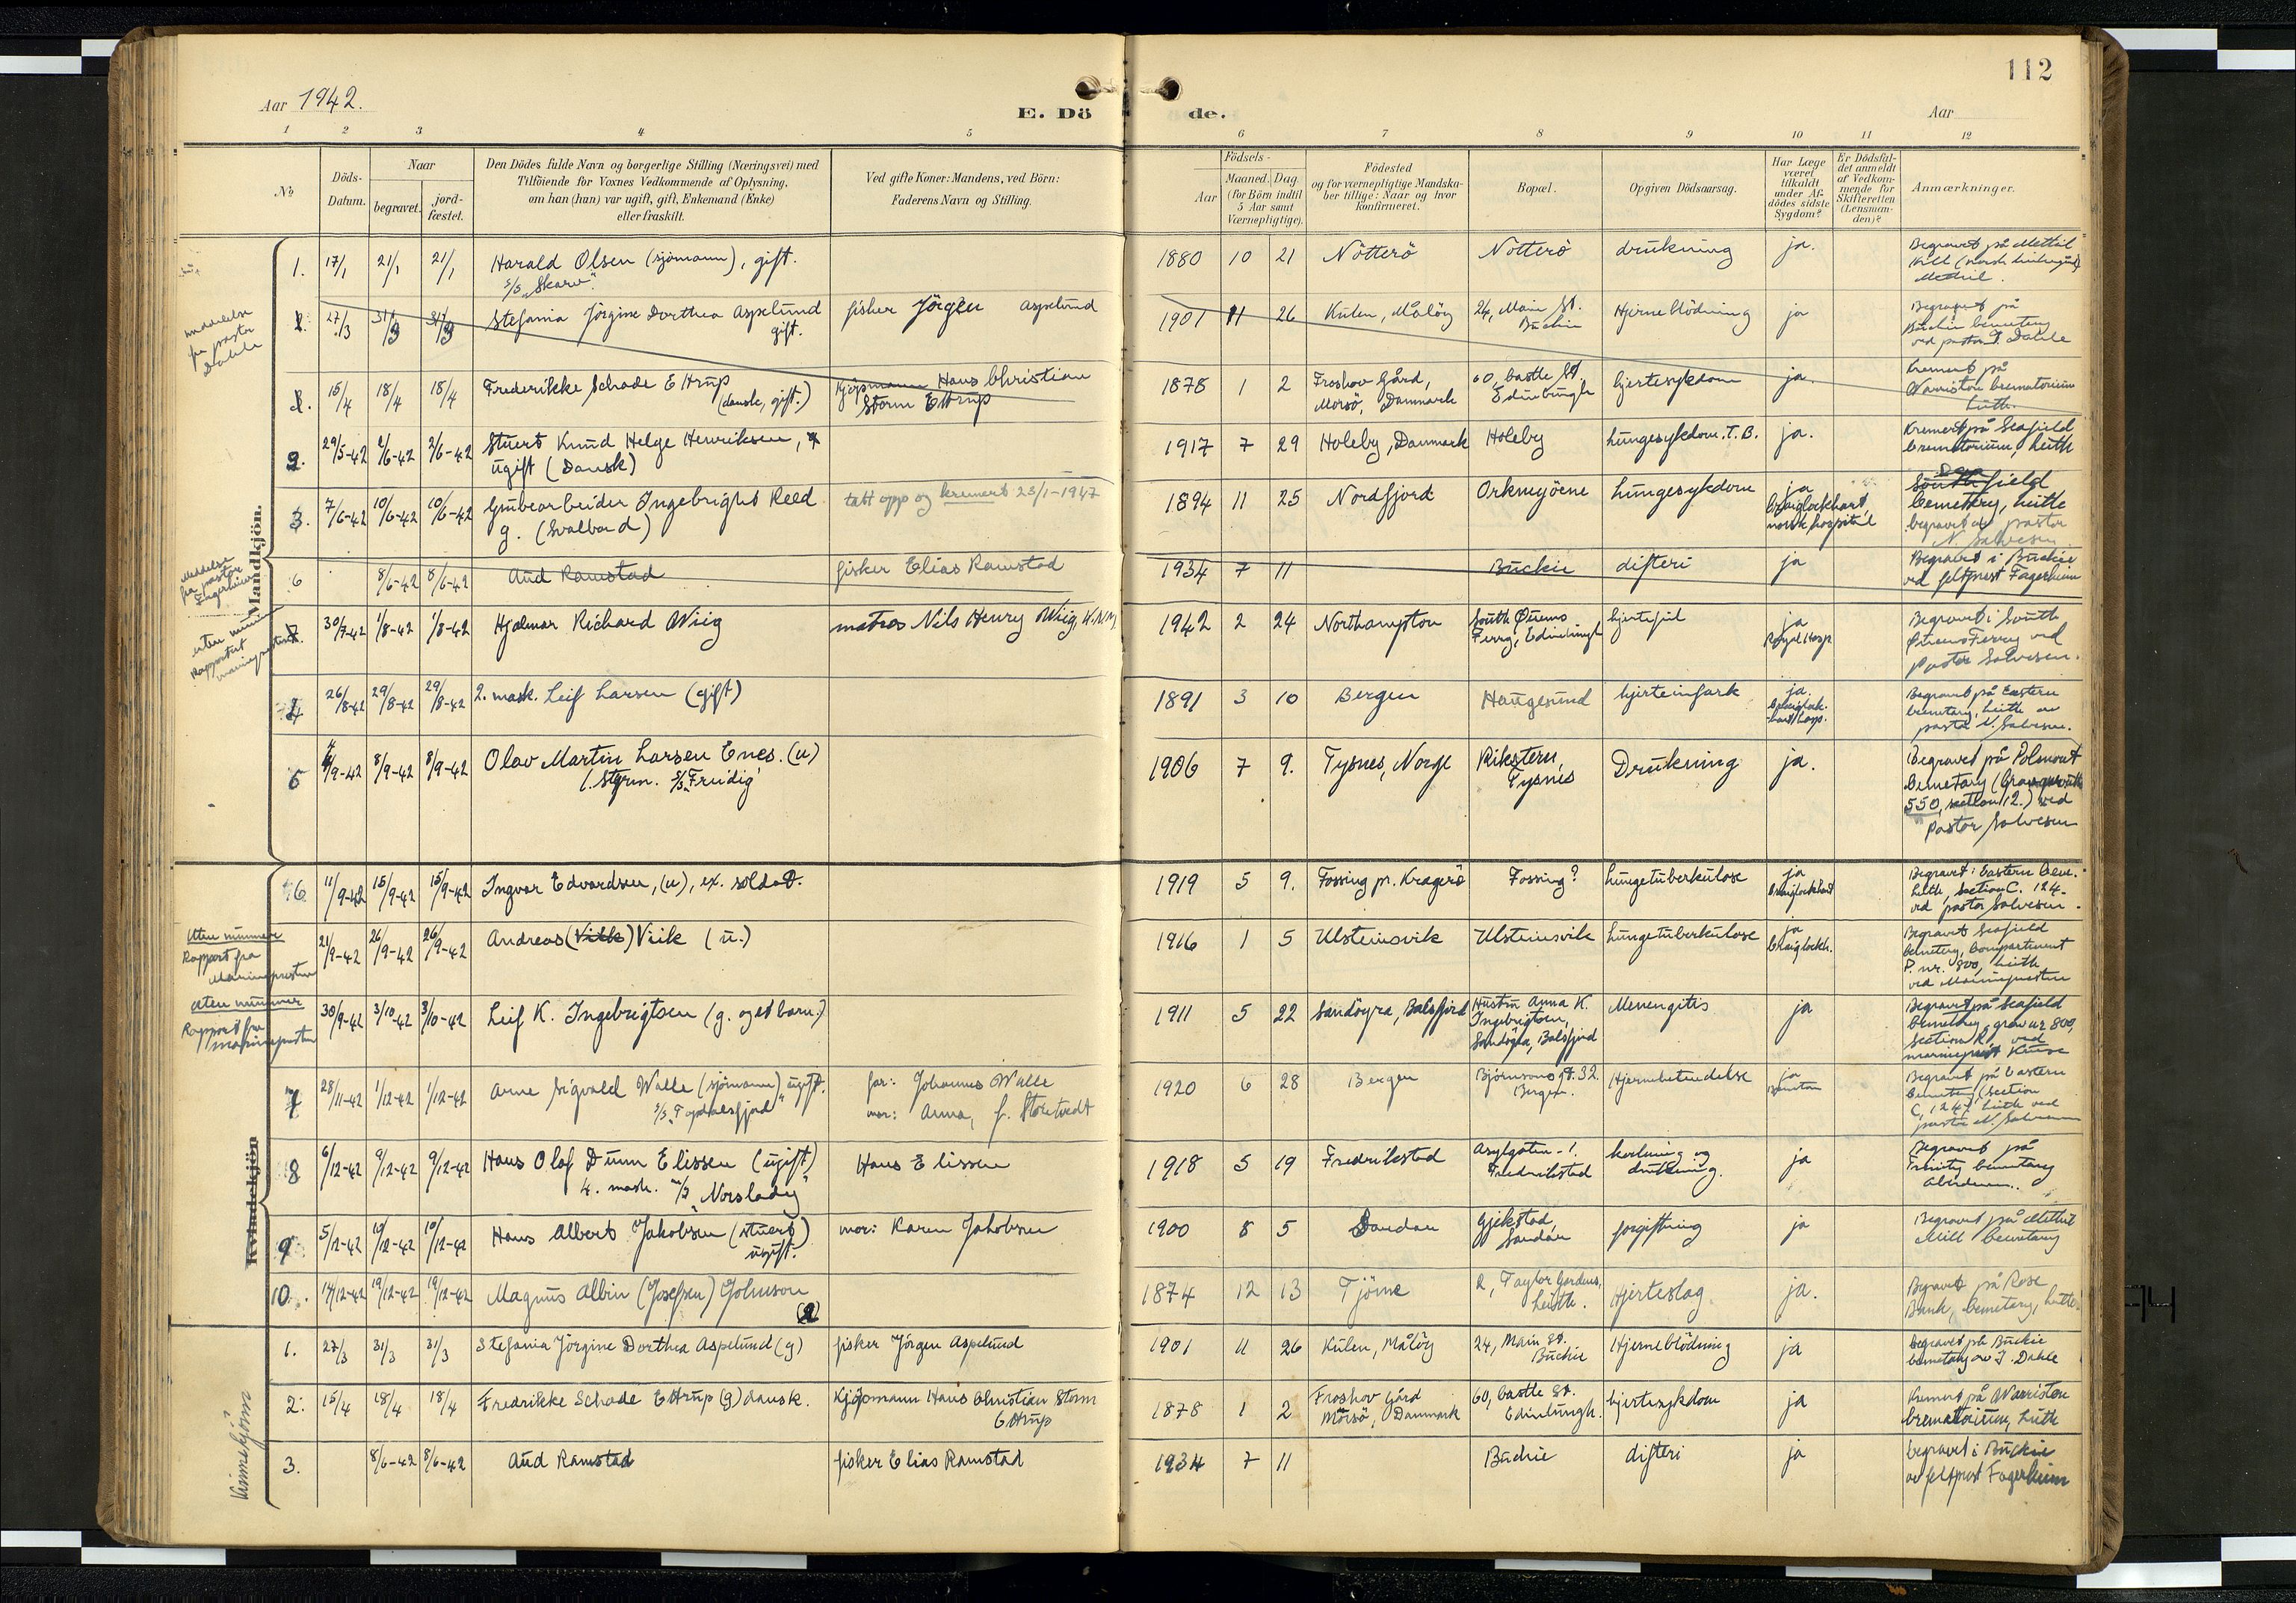 112
Aar 1942.
E. Dö de.
Aar
1 2 3 4 5 6 7 8 9 10 11 12
No
Döds-Datum.
Naar
begravet.
jord-fæstet.
Den Dödes fulde Navn og borgerlige Stilling (Næringsvei) med
Tilföiende for Voxnes Vedkommende af Oplysning,
om han (hun) var ugift, gift, Enkemand (Enke)
eller fraskilt.
Ved gifte Koner: Mandens, ved Börn:
Faderens Navn og Stilling.
Födsels-
Aar
Maaned. Dag.
(for Börn indtil
5 Aar samt
Værnepligtige).
Födested
og for værnepligtige Mandska-
ber tillige: Naar og hvor
konfirmeret.
Bopæl.
Opgiven Dödsaarsag.
Har Læge
været
tilkaldt
under Af-
dödes sidste
Sygdom?
Er Dödsfal-
det anmeldt
af Vedkom-
mende for
Skifteretten
(Lensman-
den)?
Anmærkninger.
Mandkjön.
1. 17/1 21/1 21/1 Harald Olsen (sjömann), gift. 1880 10 21 Nötterö Nötterö drukning ja. Begravet på Mettil
s/s "Skarv"
meddelelse
fra pastor
Dahle
27/3 31/3 31/3 Stefania Jörgine Dorthea Aspelund fisker Jörgen Aspelund 1901 11 26 Kulen, Målöy 24, Main St. Hjerneblödning ja Begravet på
gift. Buckie Buckie Cemetery
ved pastor J. Dahle
15/4 18/4 18/4 Frederikke Schade Ettrup Kjöpmann Hans Christian 1878 1 2 Froshov Gård, 60, Castle St. hjertesykdom ja. Kremert på
(dansk, gift.) Storm Ettrup Morsö, Danmark Edinburgh Warriston Crematorium
Leith.
29/5-42 2/6-42 2/6-42 Stuert Knud Helge Henriksen, 1917 7 29 Holeby, Danmark Holeby Lungesykdom. T.B. ja. Kremert på Seafield
ugift (Dansk) Crematorium, Leith
3. 7/6-42 10/6-42 10/6-42 Grubearbeider Ingebright Reed tatt opp og kremert 23/1-1947 1894 11 25 Nordfjord Orknöyene Lungesykdom ja field
g. (Svalbard) Craiglockhart, Cemetery, Leith
norsk hospital begravet av pastor
N. Salvesen
Meddelelse
fra pastor
Fagerheim
6 8/6-42 8/6-42 Aud Ramstad fisker Elias Ramstad 1934 7 11 Buckie difteri ja Begravet i Buckie
ved feltprest Fagerheim
uten nummer
Rapportert
marineprest
7 30/7-42 1/8-42 1/8-42 Hjalmar Richard Wiig matros Nils Henry Wiig, 1942 2 24 Northampton South Queens hjertefeil ja Begravet i South
Ferry, Edinburgh Royal Hosp. Queens Ferry ved
pastor Salvesen.
4 26/8-42 29/8-42 29/8-42 2. mask. Leif Larsen (gift) 1891 3 10 Bergen Haugesund hjerteinfark ja. Begravet på Eastern
Craiglock- Cemetery, Leith av
hart hosp. pastor N. Salvesen.
5 4/9-42 8/9-42 8/9-42 Olav Martin Larsen Enes. (u) 1906 7 9. Tysnes, Norge Riksteru, Drukning ja. Begravet på Polmont
1. Styrm. s/s "Freidig" Tysnes Cemetery
550, section 12.) ved
pastor Salvesen
Kvindekjön
6 11/9-42 15/9-42 15/9-42 Ingvar Edvardsen, (u), ex. soldat. 1919 5 9. Fossing pr. Kragerö Fossing? Lungetuberkulose ja Begravet i Eastern Cem.
Craiglockhart Leith, section C. 124.
ved pastor Salvesen.
Uten nummer
Rapport fra
Marinepresten
21/9-42 26/9-42 26/9-42 Andreas (Vilk) Viik (u.) 1916 1 5 Ulsteinsvik Ulsteinsvik Lungetuberkulose ja Begravet Seafield
Craiglockh. Cemetery, Compartment
P. nr. 800, Leith
ved Marinepresten
Uten nummer
Rapport fra
marinepresten
30/9-42 3/10-42 3/10-42 Leif K. Ingebrigtsen (g. og et barn.) 1911 5 22 Sandöyra, Balsfjord Hustru Anna K. Menengitis ja Begravet på Seafield
Ingebrigtsen, Cemetery, grav nr 809,
Sandöyra, Balsfjord section R, ved
marineprest
7 28/11-42 1/12-42 1/12-42 Arne Sigvald Walle (sjömann) ugift. far: Johannes Walle 1920 6 28 Bergen Björnsonsgt. 32. Hjernebetendelse ja Begravet på Eastern
s/s "Topdalsfjord" mor: Anna, f. Storetvedt Bergen. Cemetery (section
C, 1247 Leith ved
pastor N. Salvesen
8 6/12-42 9/12-42 9/12-42 Hans Olaf Dunn Elissen (ugift) Hans Elissen 1918 5 19 Fredrikstad Asylgaten -1. kvelning og ja Begravet på
4. mask. m/s "Norslady" Fredrikstad drukning. Trinity Cemetery
Aberdeen.
9 5/12-42 10/12-42 10/12-42 Hans Albert Jakobsen (stuert) mor: Karen Jakobsen 1900 8 5 Sandar Gjekstad, forgiftning ja Begravet på Methil
ugift. Sandar Mill Cemetery
10. 14/12-42 19/12-42 19/12-42 Magnus Albin (Josefsen) Johnson 1874 12 13 Tjöme 2, Taylor Gardens, Hjerteslag ja. Begravet på Rose
Leith. Bank, Cemetery, Leith
Kvinnekjönn
1. 27/3 31/3 31/3 Stefania Jörgine Dorthea Aspelund (g) fisker Jörgen Aspelund 1901 11 26 Kulen, Målöy 24, Main St. Hjerneblödning ja begravet på Buckie
Buckie Cemetery av J. Dahle
2. 15/4 18/4 18/4 Fredrikke Schade Ettrup (g) dansk. Kjöpmann Hans Christian Storm 1878 1 2 Froshov Gård 60, Castle St. hjertesykdom ja Kremert på Warriston
Ettrup Morsö, Danmark Edinburgh. Crematorium, Leith
3. 8/6-42 8/6-42 Aud Ramstad fisker Elias Ramstad 1934 7 11 Buckie difteri ja begravet i Buckie
av feltprest Fagerheim